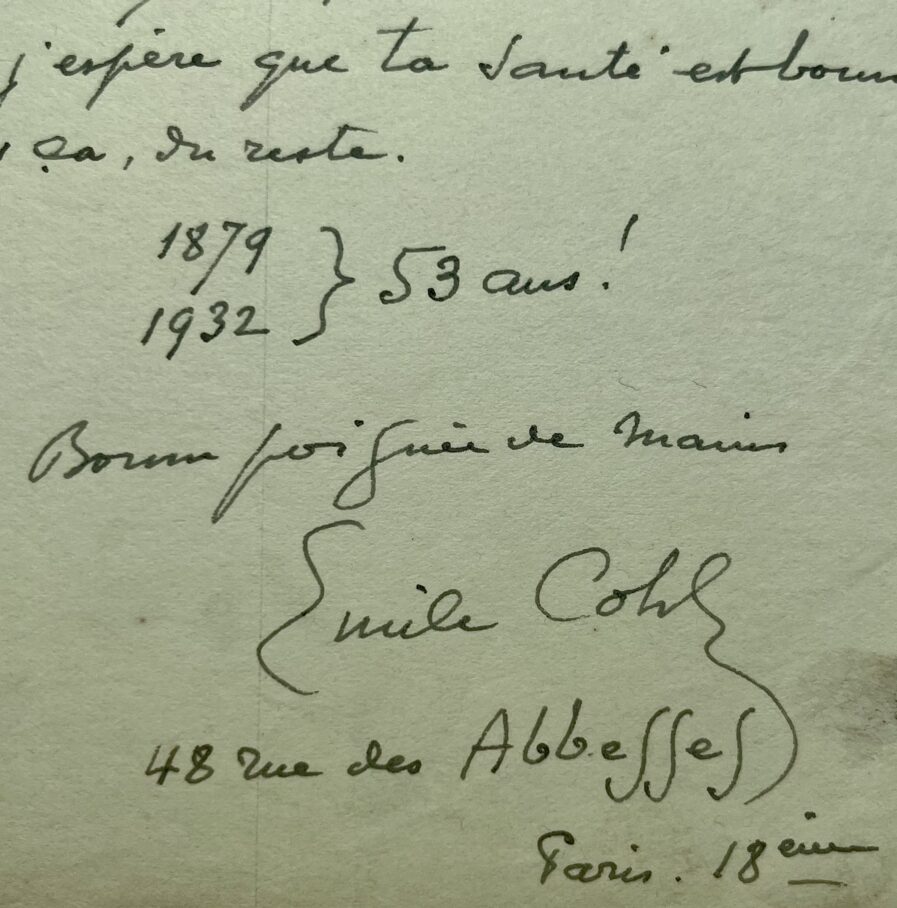 j'espère que ta santé est bonn
ça, du reste.
1879
1932 } 53 ans!
Bonne poignée de mains
Emile Cohl
48 rue des Abbesses
Paris. 18ème